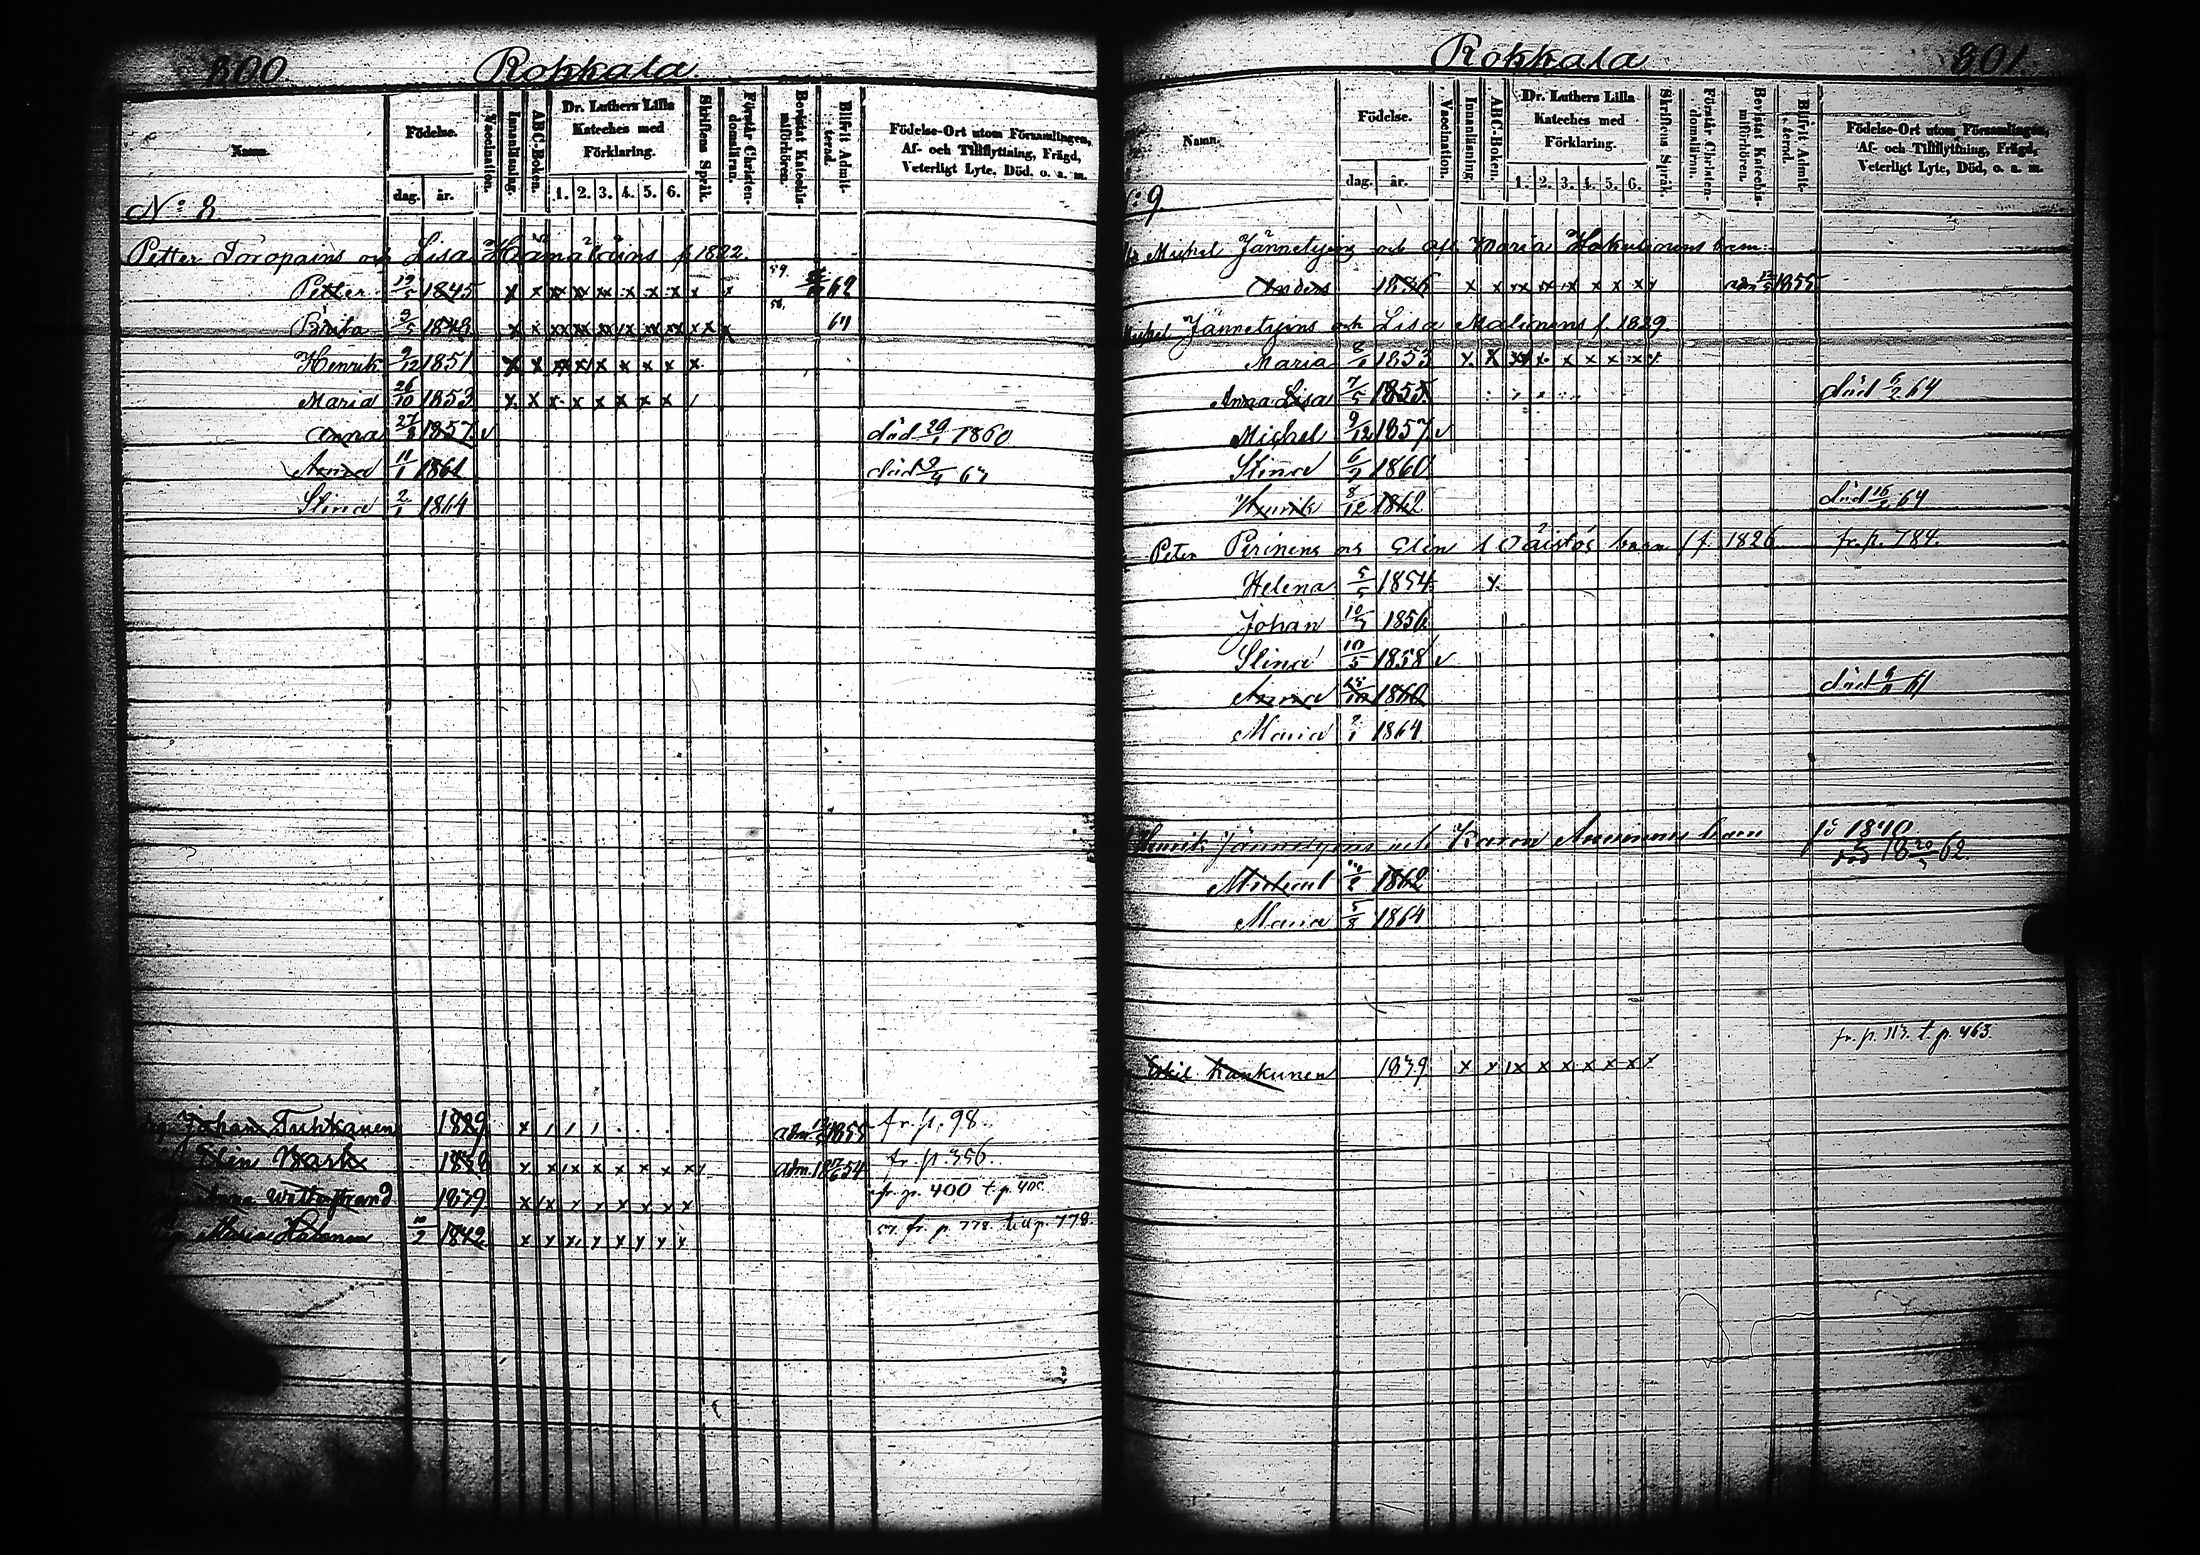 800 Rokkala
Namn. Födelse. dag. år. Vaccination. Innanläsning. ABC-Boken. Dr. Luthers Lilla Kateches med Förklaring. 1. 2. 3. 4. 5. 6. Skriftens Språk. Förstår Christendomsläran. Bevistat Katechismiförhören. Blifvit Admitterad. Födelse-Ort utom Församlingen, Af- och Tillflyttning, Frägd, Veterligt Lyte, Död, o. a. m.
No 8
Petter Toropains och Lisa f. 1822.
Petter 19/5 1845 x x xx xx xx x x x x x 59. 62
Brita 3/5 1849 x x xx xx xx x xx xx x x x 58. 64
Henrik 9/12 1851 x x xx x x x x x x
Maria 26/10 1853 x x x x x x x x /
Anna 27/8 1857 v död 29/1 1860
Anna 11/1 1861 död 9/4 63
Stina 2/1 1864
Johan Tuhkanen 1829 x / / / adm. 1855 fr. p. 98.
Elin Wark x x x x x x x x adm. 18 54 fr. p. 356.
Anna Wetterstrand 1839 x x x x x x x x fr. p. 400 t. p.
Maria Halonen 10/2 1842 x x x x x x x x fr. p. 778. till p. 778.
Rokkala 801.
Namn. Födelse. dag. år. Vaccination. Innanläsning. ABC-Boken. Dr. Luthers Lilla Kateches med Förklaring. 1. 2. 3. 4. 5. 6. Skriftens Språk. Förstår Christendomsläran. Bevistat Katechismiförhören. Blifvit Admitterad. Födelse-Ort utom Församlingen, Af- och Tillflyttning, Frägd, Veterligt Lyte, Död, o. a. m.
9
Michel Jännetyins och afl. Maria barn:
Anders 1836 x x x x x x x x adm 1855
Michel Jännetyins och Lisa Malinens f. 1829.
Maria 1853 x x x x x x x x x
Anna Lisa 7/5 1855 död 6/2 64
Michel 9/12 1857 v
Stina 6/9 1860
Henrik 8/12 1862 död 16/2 64
Peter Pirinens och Elin Väistös barn f. 1826 fr. p. 784.
Helena 5/5 1854 x
Johan 10/7 1856
Stina 10/5 1858 v
Anna 1860 död 61
Maria 2/1 1864
Henrik Jännetyins och Karin barn fö 1840
18 62.
Michael 1862
Maria 5/8 1864
fr. p. 113. t. p. 463.
Eskil Kankunen 1839 x x x x x x x x x